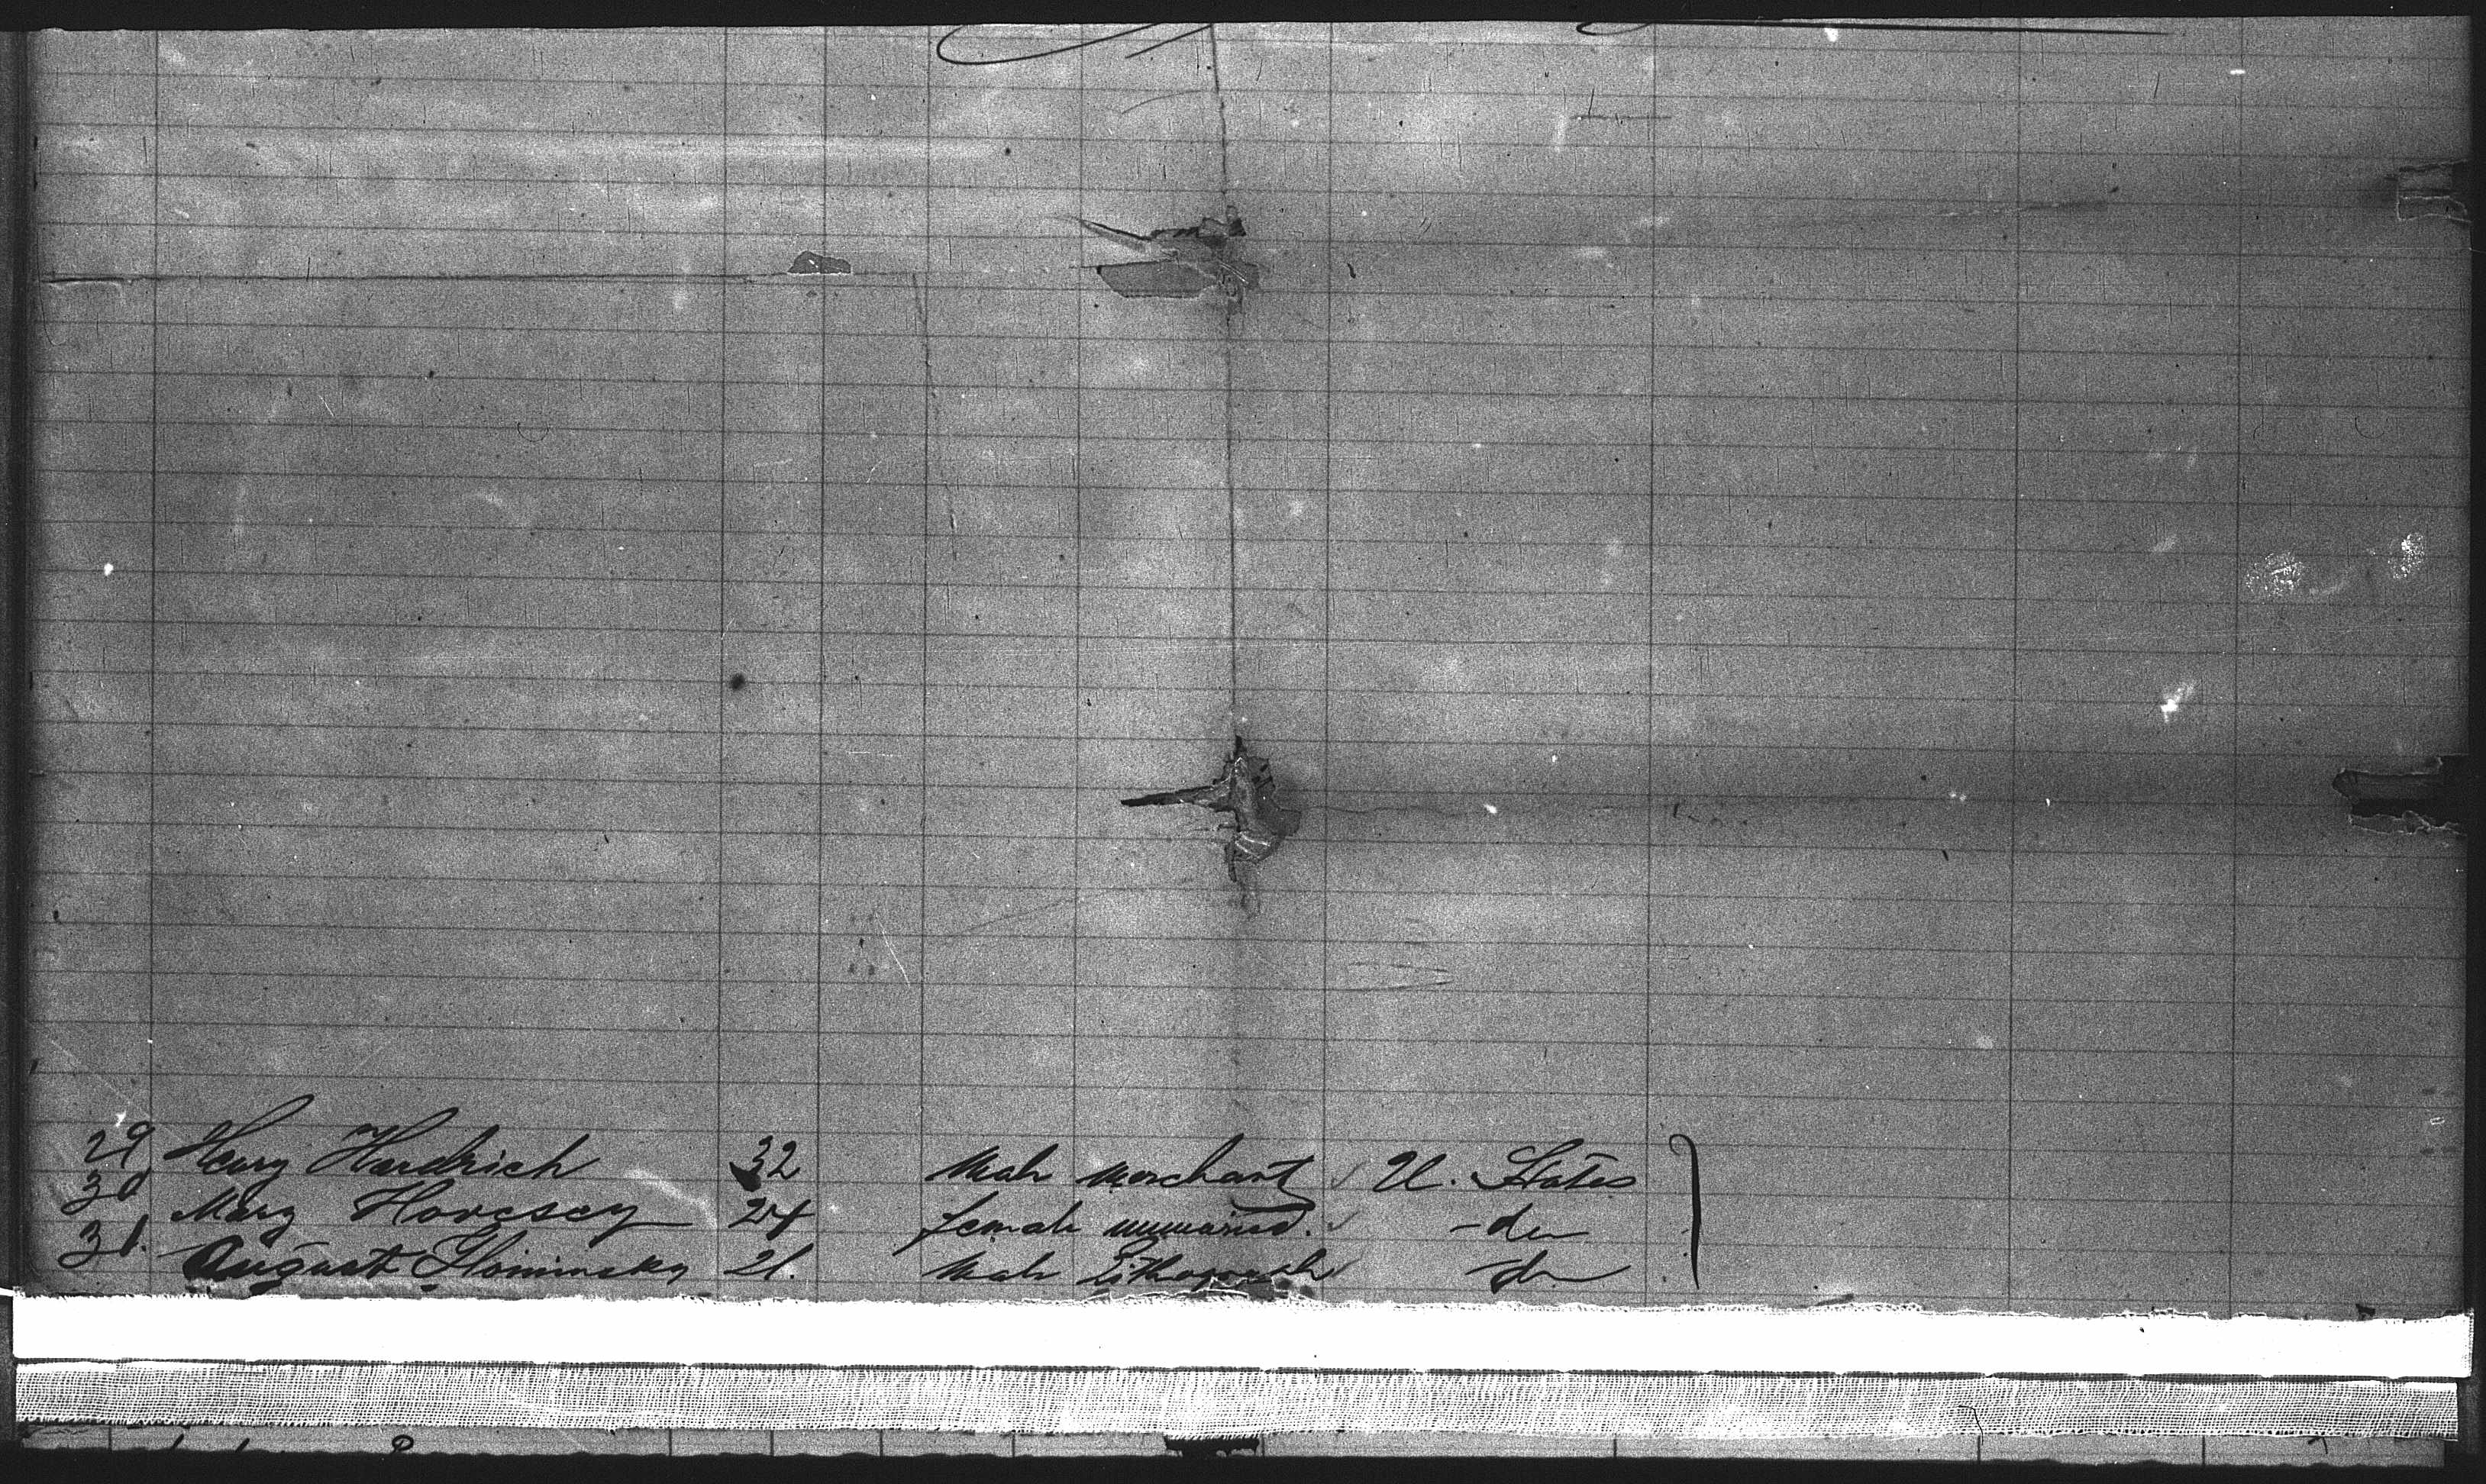 29 Henry Hardrich 32 Male merchant U. States
30 Mary 24 female unmarried. -do
31. August 21. Male Lithograph do